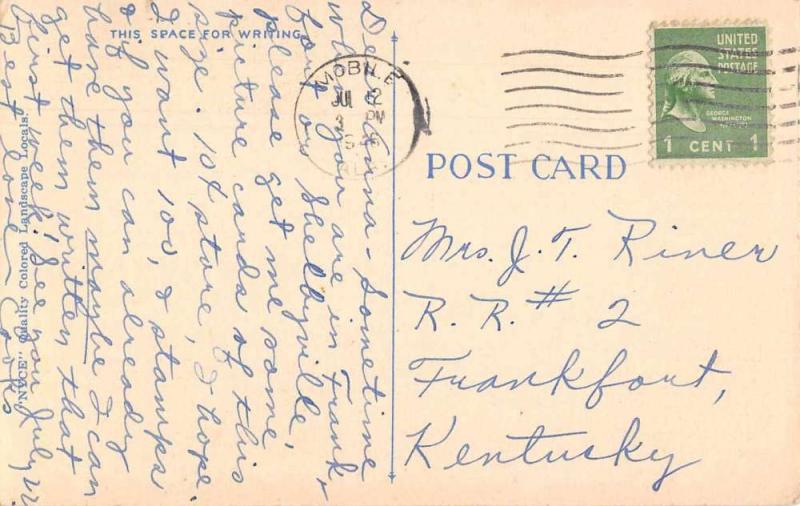 THIS SPACE FOR WRITING
Dear Anna - Sometime
when you are in Frank-
fort or Shelbyville,
please get me some
picture cards of this
size. 10¢ store, I hope.
I want 100, & stamps
& if you can already
have them maybe I can
get them written that
first week! See you July 22
Best love - Cooks
"NYCE" Quality Colored Landscape Locals.
MOBILE
JUL 12
PM
ALA.
UNITED
STATES
POSTAGE
GEORGE
WASHINGTON
1 CENT 1
POST CARD
Mrs. J. T. Riner
R. R. # 2
Frankfort,
Kentucky